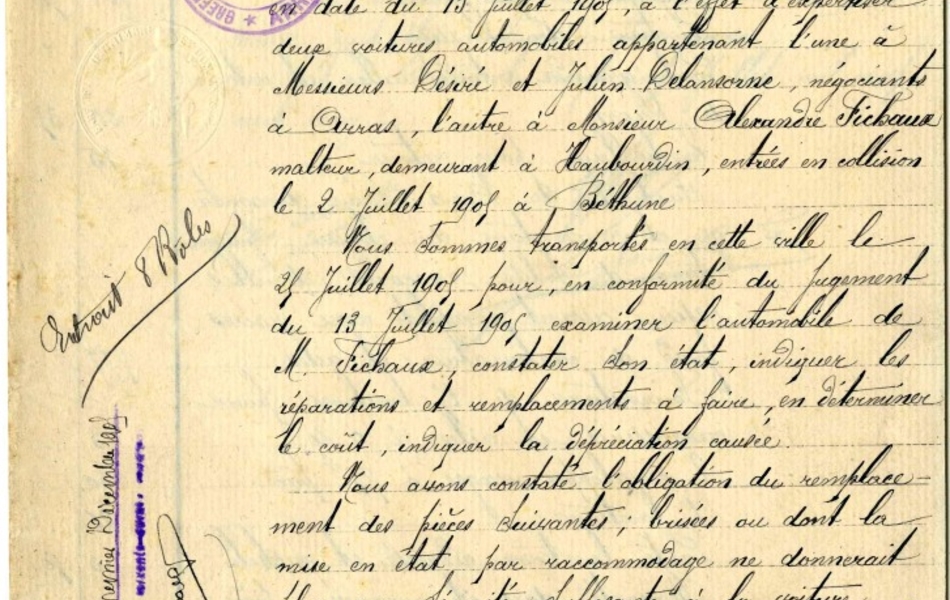 en date du 13 Juillet 1905, à l'effet d'expertiser
deux voitures automobiles appartenant l'une à
Messieurs Désiré et Julien Delansorne, négociants
à Arras, l'autre à Monsieur Alexandre Fichaux
malteur, demeurant à Haubourdin, entrées en collision
le 2 Juillet 1905 à Béthune
Nous sommes transportés en cette ville le
25 Juillet 1905 pour, en conformité du jugement
du 13 Juillet 1905 examiner l'automobile de
M. Fichaux, constater son état, indiquer les
réparations et remplacements à faire, en déterminer
le coût, indiquer la dépréciation causée.
Nous avons constaté l'obligation du remplace-
ment des pièces suivantes; brisées ou dont la
mise en état par raccommodage ne donnerait
la voiture
Extrait 8 Rôles
Décembre 1905